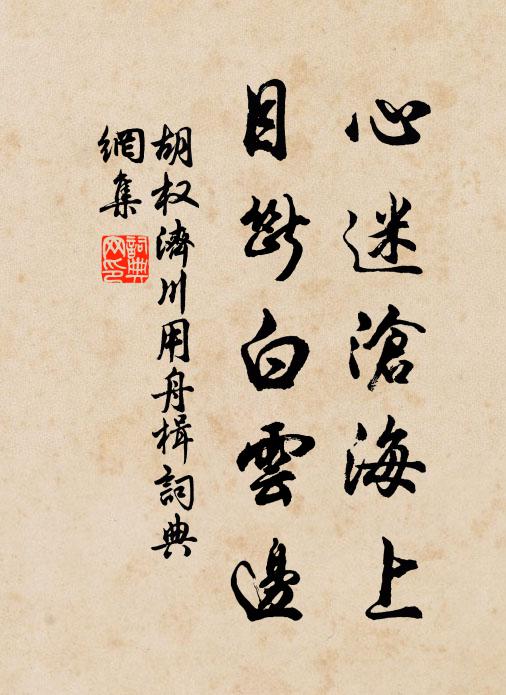 心迷滄海上
目斷白雲邊
胡权濟川用舟楫詞典
網集
詞典
网印